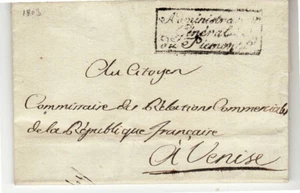 1803
Administration
Générale
du Piémont
Au Citoyen
Commissaire des Relations Commerciales
de la République française
à Venise